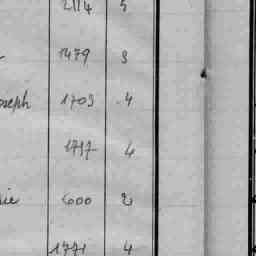 2114 5
1479 3
oseph 1703 4
1717 4
ie 600 2
1771 4